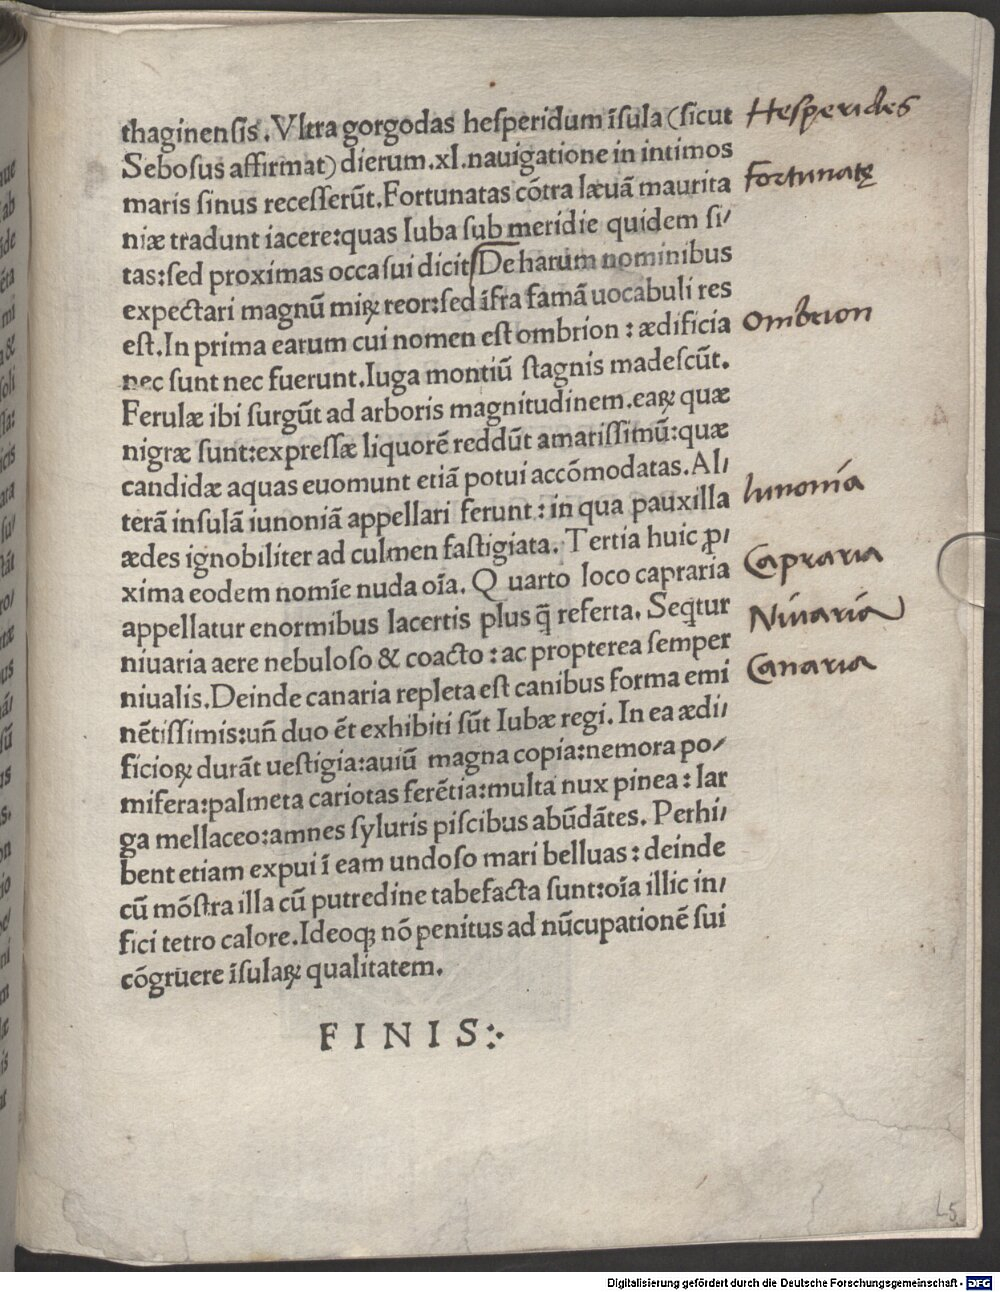 thaginenſis. Vltra gorgodas heſperidum ĩſula (ſicut
Seboſus affirmat) dierum .xl. nauigatione in intimos
maris ſinus receſſerũt. Fortunatas cõtra læuã maurita
niæ tradunt iacere: quas Iuba ſub meridie quidem ſi/
tas: ſed proximas occaſui dicit De harum nominibus
expectari magnũ miꝝ reor: ſed ĩfra famã uocabuli res
eſt. In prima earum cui nomen eſt ombrion: ædificia
nec ſunt nec fuerunt. Iuga montiũ ſtagnis madeſcũt.
Ferulæ ibi ſurgũt ad arboris magnitudinem. eaꝝ quæ
nigræ ſunt: expreſſæ liquorẽ reddũt amariſſimũ: quæ
candidæ aquas euomunt etiã potui accõmodatas. Al/
terã inſulã iunoniã appellari ferunt: in qua pauxilla
ædes ignobiliter ad culmen faſtigiata. Tertia huic ꝓ/
xima eodem nomĩe nuda oĩa. Q uarto loco capraria
appellatur enormibus lacertis plus q̃ referta. Seqͥtur
niuaria aere nebuloſo & coacto: ac propterea ſemper
niualis. Deinde canaria repleta eſt canibus forma emi
nẽtiſſimis: uñ duo ẽt exhibiti ſũt Iubæ regi. In ea ædi/
ficioꝝ durãt ueſtigia: auiũ magna copia: nemora po/
mifera: palmeta cariotas ferẽtia: multa nux pinea: lar
ga mellaceo: amnes ſyluris piſcibus abũdãtes. Perhi/
bent etiam expui ĩ eam undoſo mari belluas: deinde
cũ mõſtra illa cũ putredine tabefacta ſunt: oĩa illic in/
fici tetro calore. Ideoqꝫ nõ penitus ad nũcupationẽ ſui
cõgruere ĩſulaꝝ qualitatem.
FINIS:
Heſperides
Fortunatę
Ombrion
Iunonia
Capraria
Niuaria
Canaria
L5
Digitalisierung gefördert durch die Deutsche Forschungsgemeinschaft - DFG